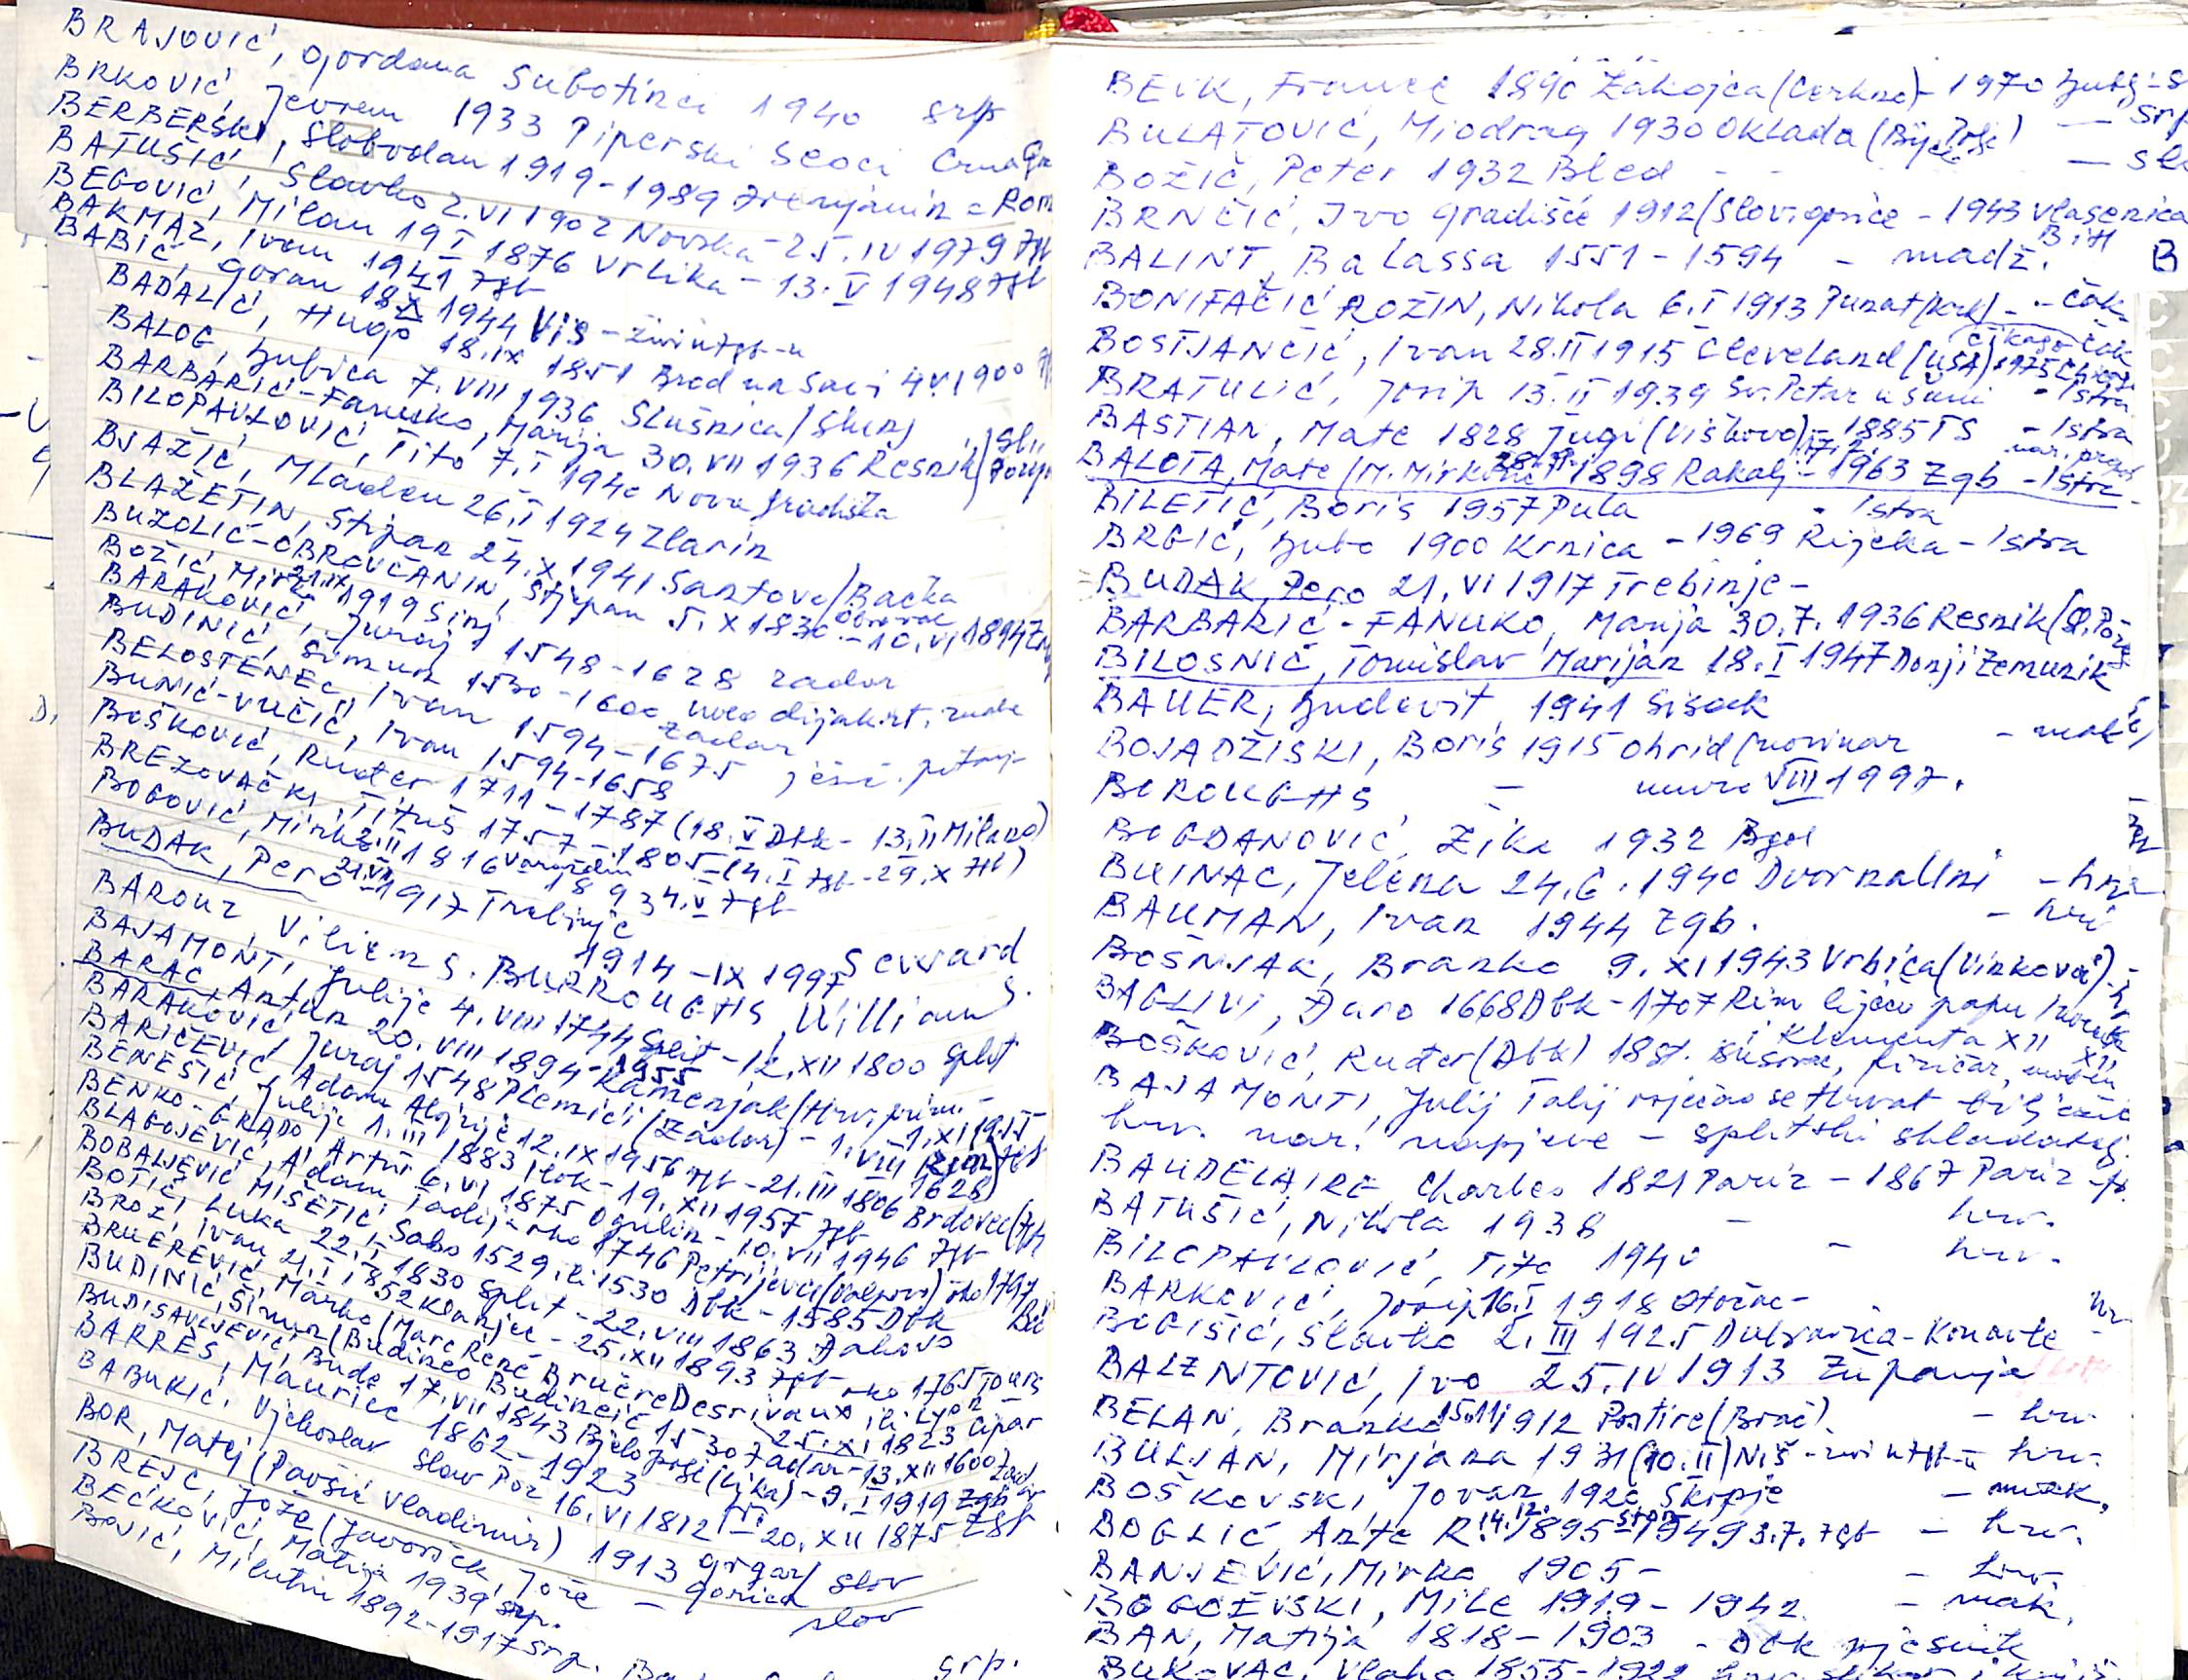 BRAJOVIĆ, Gordana Subotinci 1940 srp
BRKOVIĆ, Jevrem 1933 Piperski Seoci Crna Go
BERBERSKI, Slobodan 1919-1989 Zrenjanin - Rom
BATUŠIĆ, Slavko 2.VI 1902 Novska - 25.IV 1979 Zgb
BEGOVIĆ, Milan 19 I 1876 Vrlika - 13.V 1948 Zgb
BAKMAZ, Ivan 1941 Zgb
BABIĆ, Goran 18 X 1944 Vis - živi u Zgb-u
BADALIĆ, Hugo 18.IX 1851 Brod na Savi 4 V.1900
BALOG, Ljubica 7.VIII 1936 Slušnica/Slunj
BARBARIĆ-FANUKO, Marija 30.VII 1936 Resnik
BILOPAVLOVIĆ, Tito 7.I 1940 Nova Gradiška
BJAŽIĆ, Mladen 26.I 1924 Zlarin
BLAŽETIN, Stjepan 24.X 1941 Santovo/Bačka
BUZOLIĆ-OBROVČANIN, Stjepan 5.X 1830 Obrovac - 10.VI 1894
BOŽIĆ, Mirko 21.IX 1919 Sinj
BARAKOVIĆ, Juraj 1548-1628 Zadar
BUDINIĆ, Šimun 1530-1600 Zadar
BELOSTENEC, Ivan 1594-1675
BUNIĆ-VUČIĆ, Ivan 1594-1658
BOŠKOVIĆ, Ruđer 1711-1787 (18.V Dbk - 13.II Milano)
BREZOVAČKI, Tituš 1757-1805 (4.I Zgb - 29.X Zgb)
BOGOVIĆ, Mirko 2.II 1816 Varaždin 1893 4.V Zgb
BUDAK, Pero 21.VI 1917 Trebinje
1914-IX 1997 Seward
BAROUZ, Viliem S. BURROUGHS, William S.
BAJAMONTI, Julije 4.VIII 1744 Split - 12.XII 1800 Split
BARAC, Antun 20.VIII 1894-1955 Kamenjak (Hrv. prim. - 1.XI 1955 Zgb
BARAKOVIĆ, Juraj 1548 Plemići (Zadar) - 1.VIII 1628 Rim)
BARIČEVIĆ, Adam Alojzije 12.IX 1756 Zgb - 21.III 1806 Brdovec (Zgb
BENEŠIĆ, Julije 1.III 1883 Ilok - 19.XII 1957 Zgb
BENKO-GRADO, Artur 6.VI 1875 Ogulin - 10.VII 1946 Zgb
BLAGOJEVIĆ, Adam Tadija oko 1746 Petrijevci (Valpovo) oko 1797 Beč
BOBALJEVIĆ MIŠETIĆ, Sabo 1529. ili 1530 Dbk - 1585 Dbk
BOTIĆ, Luka 22.I 1830 Split - 22.VIII 1863 Đakovo
BROZ, Ivan 21.I 1852 Klanjec - 25.XII 1893 Zgb
BRUEREVIĆ, Marko (Marc René Bruère Desrivaux oko 1765 Tours ili Lyon 25.XI 1823 Cipar
BUDINIĆ, Šimun (Budineo Budinčić 1530 Zadar - 13.XII 1600 Zadar
BUDISAVLJEVIĆ, Bude 17.VII 1843 Bjelopolje (Lika) - 9.I 1919 Zgb
BARRES, Maurice 1862-1923
BABUKIĆ, Vjekoslav Slav Pož 16.VI 1812 - 20.XII 1875 Zgb
BOR, Matej (Pavšič Vladimir) 1913 Grgar/Gorica slov
BREJC, Jože (Javoršek, Jože - slov
BEĆKOVIĆ, Matija 1939 srp.
BOJIĆ, Milutin 1892-1917 srp.
srp.
BEVK, France 1890 Zakojca (Cerkno) - 1970 Ljublj - s
BULATOVIĆ, Miodrag 1930 Oklada (Bijelo Polje) - srp
BOŽIČ, Peter 1932 Bled - - - slo
BRNČIĆ, Ivo Gradišće 1912 (Slov. gorice - 1943 Vlasenica BiH
BALINT, Balassa 1551-1594 - madž.
B
BONIFAČIĆ ROŽIN, Nikola 6.I 1913 Punat (Krk) - - čak.
BOSTJANČIĆ, Ivan 28.II 1915 Cleveland (USA) 1975 Čikago čak
BRATULIĆ, Josip 13.II 1939 Sv. Petar u Šumi - Istra
BASTIAN, Mate 1828 Jugi (Viškovo) - 1885 TS - Istra
BALOTA, Mate (M. Mirković 28.IX 1898 Rakalj - 17.II. 1963 Zgb - Istra
BILETIĆ, Boris 1957 Pula - Istra
BRGIĆ, Ljubo 1900 Krnica - 1969 Rijeka - Istra
BUDAK, Pero 21.VI 1917 Trebinje -
BARBARIĆ-FANUKO, Marija 30.7.1936 Resnik (Sl. Pož
BILOSNIĆ, Tomislav Marijan 18.I 1947 Donji Zemunik
BAUER, Ljudevit, 1941 Sisak
BOJADŽISKI, Boris 1915 Ohrid (novinar - mak
BOROUGHS - umro VIII 1997.
BOGDANOVIĆ, Žika 1932 Bgd
BUINAC, Jelena 24.6.1940 Dvor na Uni - hrv.
BAUMAN, Ivan 1944 Zgb. - hrv
BOŠNJAK, Branko 9.XI 1943 Vrbica (Vinkovci) - h
BAGLIVI, Đuro 1668 Dbk - 1707 Rim liječio papu Inocenta XII i Klementa XII
BOŠKOVIĆ, Ruđer (Dbk) 18 st. fizičar,
BAJAMONTI, Julij Talij osjećao se Hrvat bilježio
hrv. nar. napjeve - splitski skladatelj.
BAUDELAIRE, Charles 1821 Pariz - 1867 Pariz - fr.
BATUŠIĆ, Nikola 1938 - hrv.
BILOPAVLOVIĆ, Tito 1940 - hrv.
BARKOVIĆ, Josip 16.I 1918 Otočac - hr
BOGIŠIĆ, Slavko 2.III 1925 Dubravka - Konavle -
BALENTOVIĆ, Ivo 25.IV 1913 Županja
BELAN, Branko 15.11 1912 Postire (Brač). - hrv
BULJAN, Mirjana 1931 (10.II) Niš - živi u Zgb-u hrv.
BOŠKOVSKI, Jovan 1920 Skopje - mak.
BOGLIĆ, Ante R. 14.12. 1895-1949 3.7. Zgb - hrv.
BANJEVIĆ, Mirko 1905 - - hrv.
BOGOEVSKI, Mile 1919-1942 - mak.
BAN, Matija 1818-1903 - Dbk pjesnik
BUKOVAC, Vlaho 1855-1922 hrv. slikar i